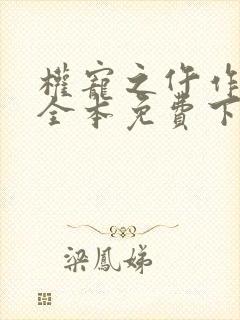 權寵之仵作
全本免費下
梁鳳娣